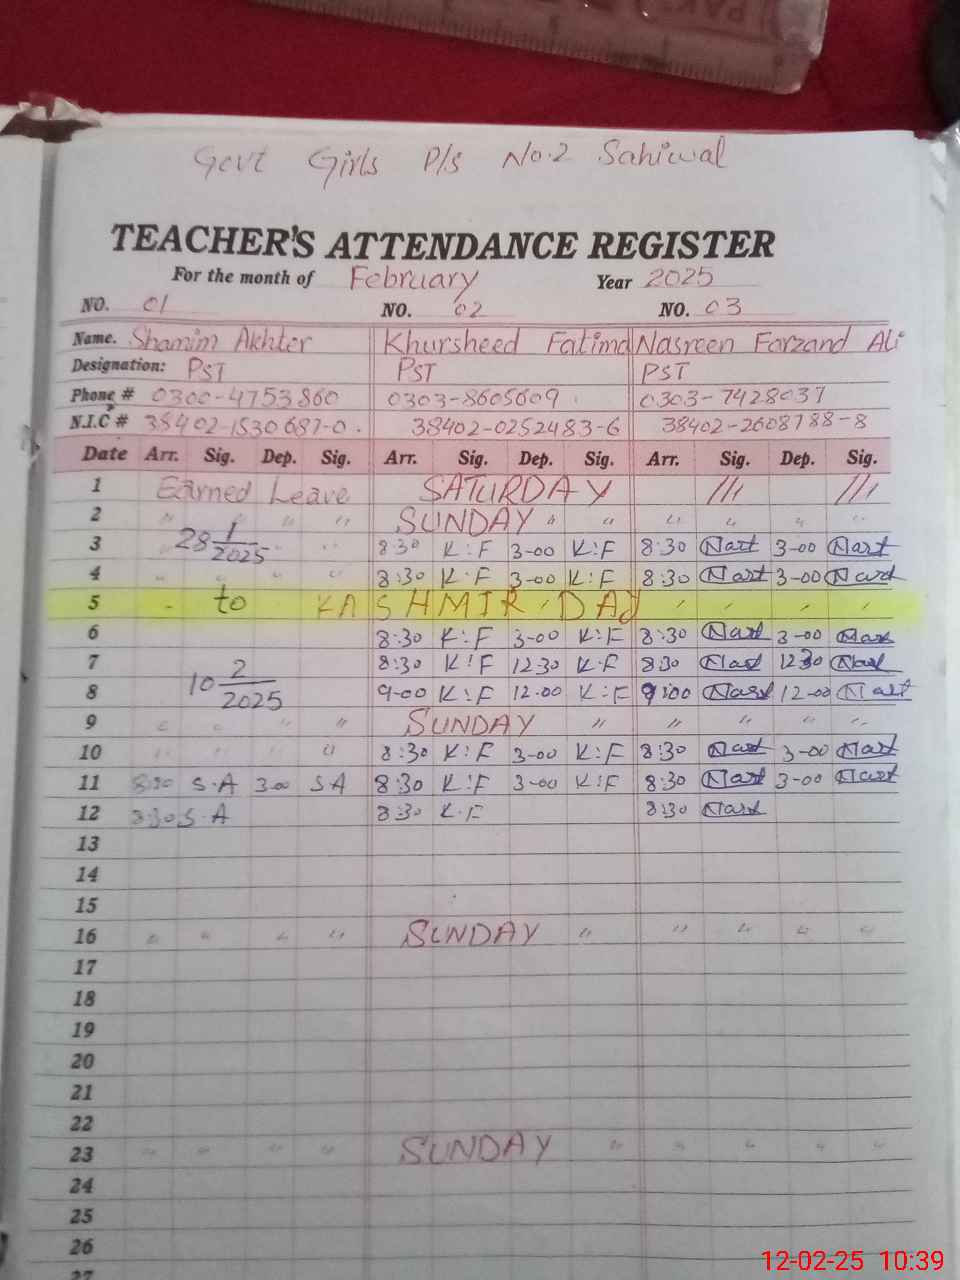 Govt Girls P/s No.2 Sahiwal
TEACHER'S ATTENDANCE REGISTER
For the month of February Year 2025
NO. 01 NO. 02 NO. 03
Name. Shamim Akhter Khursheed Fatima Nasreen Farzand Ali
Designation: PST PST PST
Phone # 0300-4753860 0303-8605609 0303-7428037
N.I.C # 38402-1530687-0. 38402-0252483-6 38402-2608788-8
Date Arr. Sig. Dep. Sig. Arr. Sig. Dep. Sig. Arr. Sig. Dep. Sig.
1 Earned Leave SATURDAY
2 " " " " SUNDAY " " " " " "
3 28 1/2025 8:30 K:F 3-00 K:F 8:30 3-00
4 " " " " 8:30 K.F 3-00 K:F 8:30 3-00
5 to KASHMIR DAY
6 8:30 K:F 3-00 K:F 8:30 3-00
7 8:30 K!F 12:30 K.F 8:30 12:30
8 10 2/2025 9-00 K:F 12-00 K:F 9:00 12-00
9 " " " " SUNDAY " " " " "
10 " " " " 8:30 K:F 3-00 K:F 8:30 3-00
11 8:30 S.A 3.00 S A 8:30 K:F 3-00 K:F 8:30 3-00
12 8:30 S.A 8:30 K.F 8:30
13
14
15
16 " " " " SUNDAY " " " " "
17
18
19
20
21
22
23 " " " " SUNDAY " " " " "
24
25
26
27
12-02-25 10:39